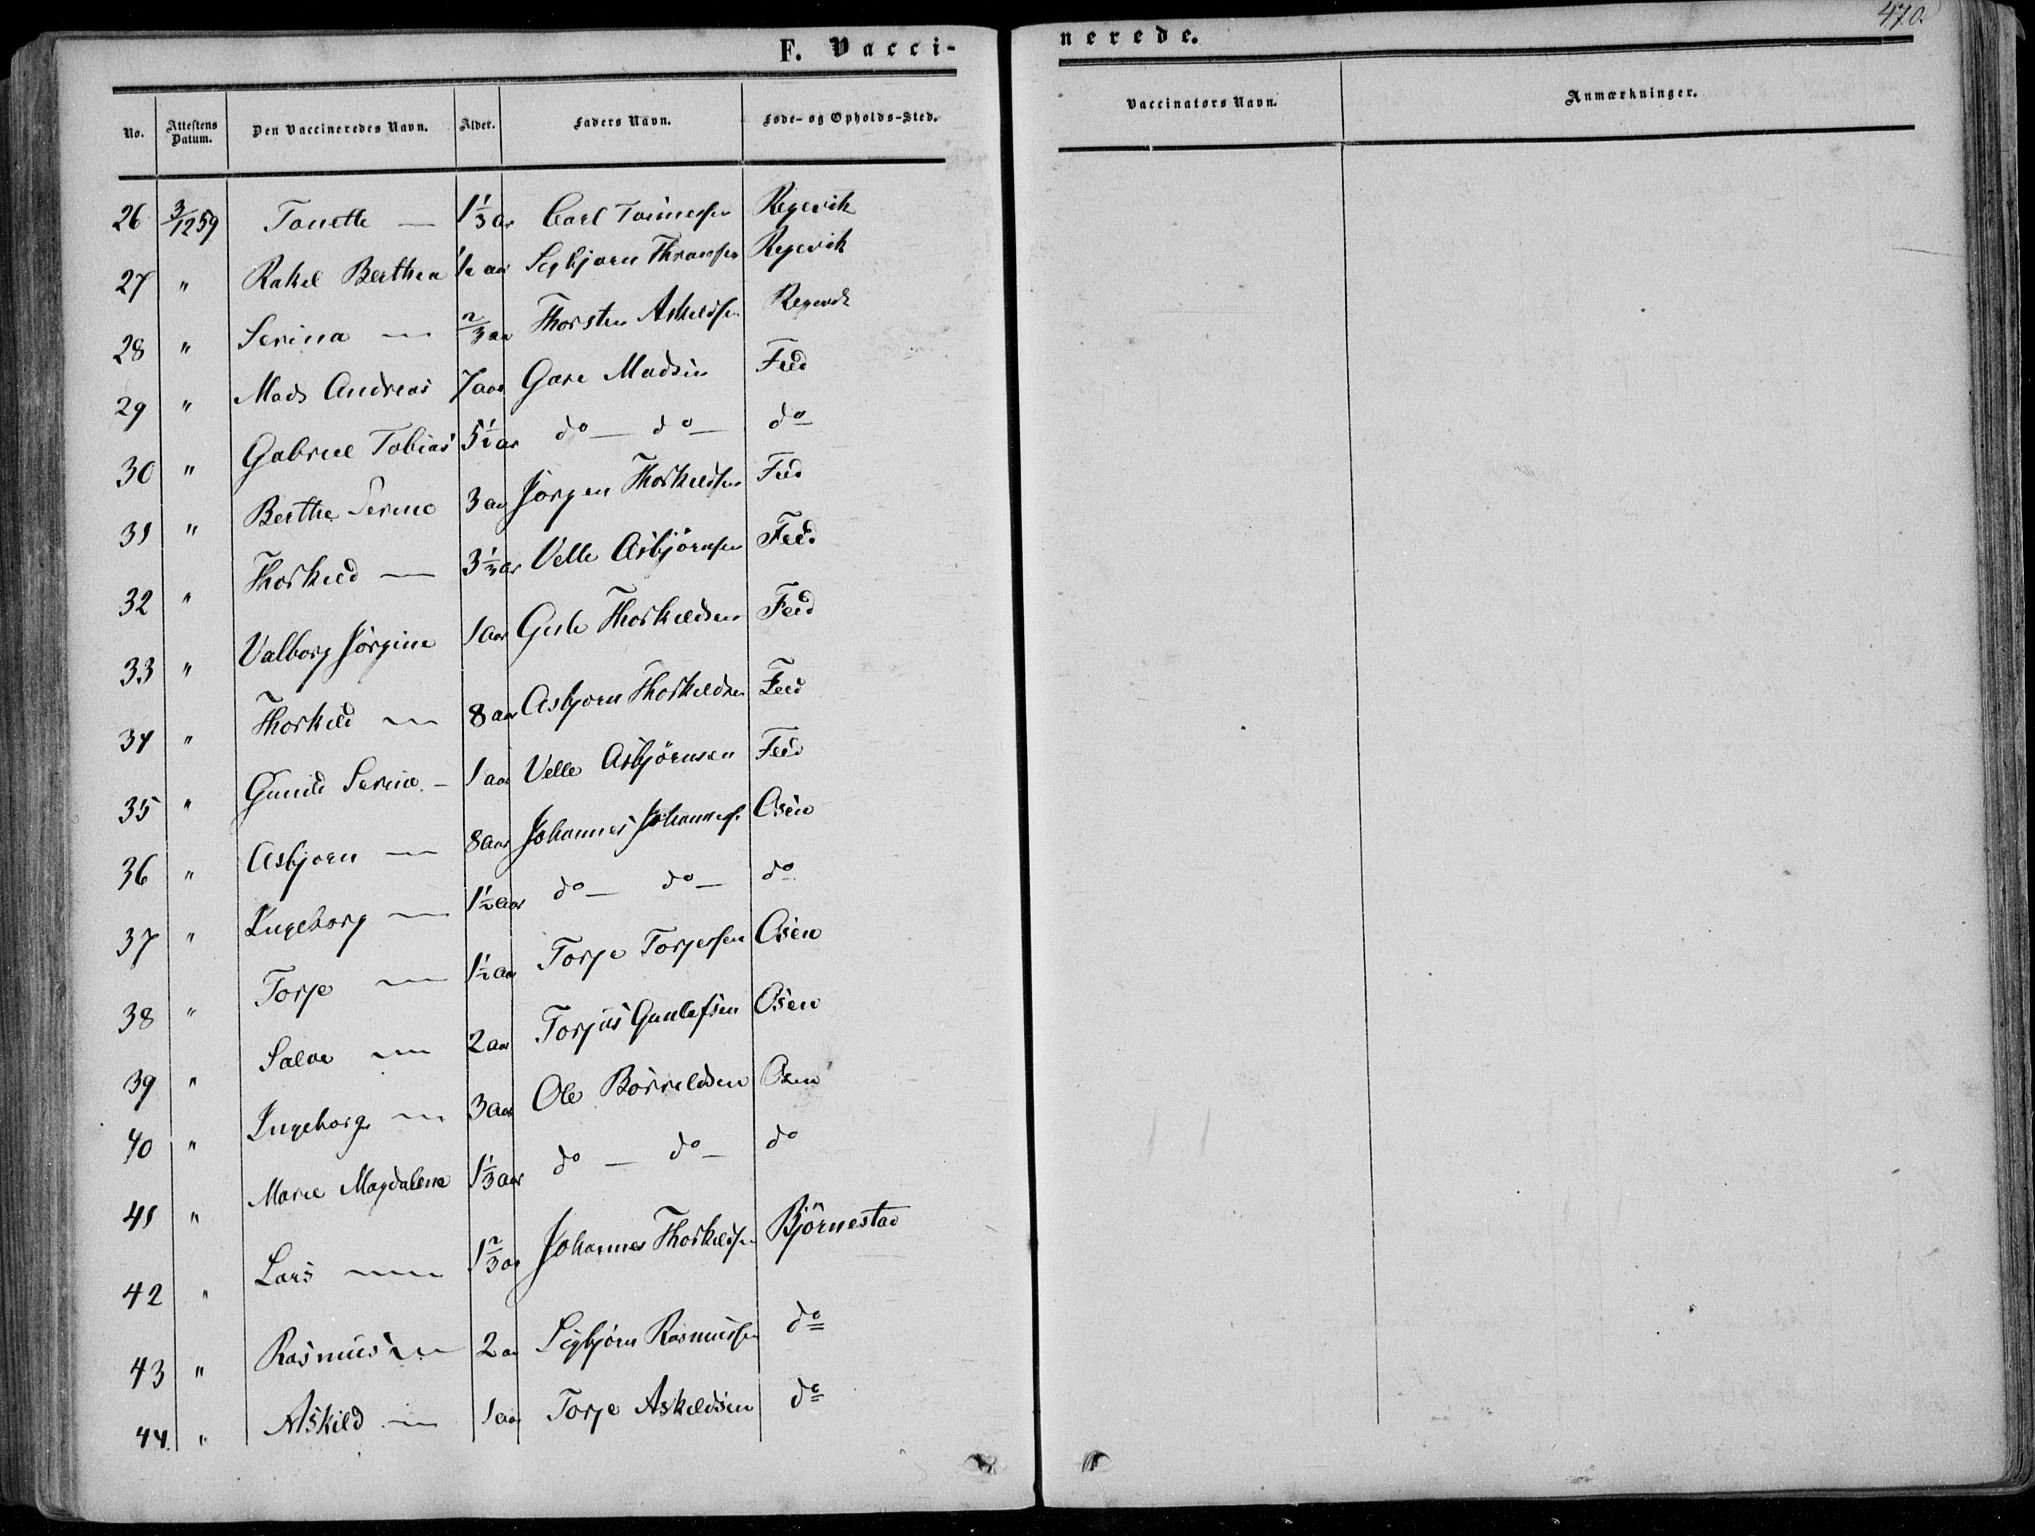 470.
F. Vacci-nerede.
No. | Attestens Datum. | Den Vaccineredes Navn. | Alder. | Faders Navn. | Føde- og Opholds-Sted. | Vaccinators Navn. | Anmærkninger.
26 3/12 59 Tonette — 1 1/3 aar Carl Tønnessen Regevik
27 " Rakel Berthea 1/2 aar Sigbjørn Regevik
28 " Serina — 2/3 aar Thorsten Askeldsen Regevik
29 " Mads Andreas 7 aar Gare Madsen Feed
30 " Gabriel Tobias 5 1/2 aar do — do — do
31 " Berthe Serine 3 aar Jørgen Thorkeldsen Feed
32 " Thorkeld — 3 1/3 aar Velle Asbjørnsen Feed
33 " Valborg Jørgine 1 aar Thorkeldsen Feed
34 " Thorkeld — 8 aar Asbjorn Thorkeldsen Feed
35 " Gunild Serine. — 1 aar Velle Asbjørnsen Feed
36 " Asbjorn — 8 aar Johannes Johanness. Osen
37 " Ingeborg — 1 1/2 aar do — do — do
38 " Torje — 1 1/2 aar Torje Torjersen Osen
39 " Salve — 2 aar Torjus Gunlefsen Osen
40 " Ingeborg — 3 aar Ole Børreldsen Osen
41 " Marie Magdalene 1 1/3 aar do — do — do
42 " Lars — 1 2/3 aar Johannes Thorkeldsen Bjørnestad
43 " Rasmus — 2 aar Sigbjørn Rasmussen do
44. " Askild — 1 aar Torje Askeldsen do